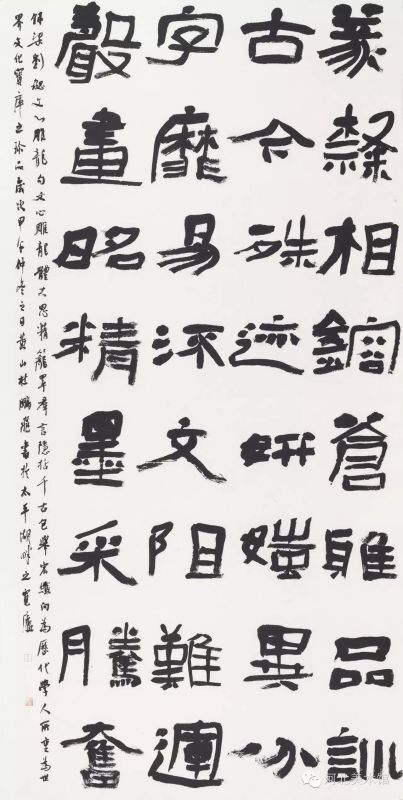 篆隸相鎔蒼雅品訓
古今殊迹妍媸異分
字靡易流文阻難運
聲畫昭精墨采騰奮
梁劉勰文心雕龍句文心雕龍體大思精籠罩羣言隱括千古包舉宏纖向為歷代學人所重為世
界文化寶庫之珍品歲次甲午仲冬之日黃山杜鵬飛書於太平湖畔之寬廬